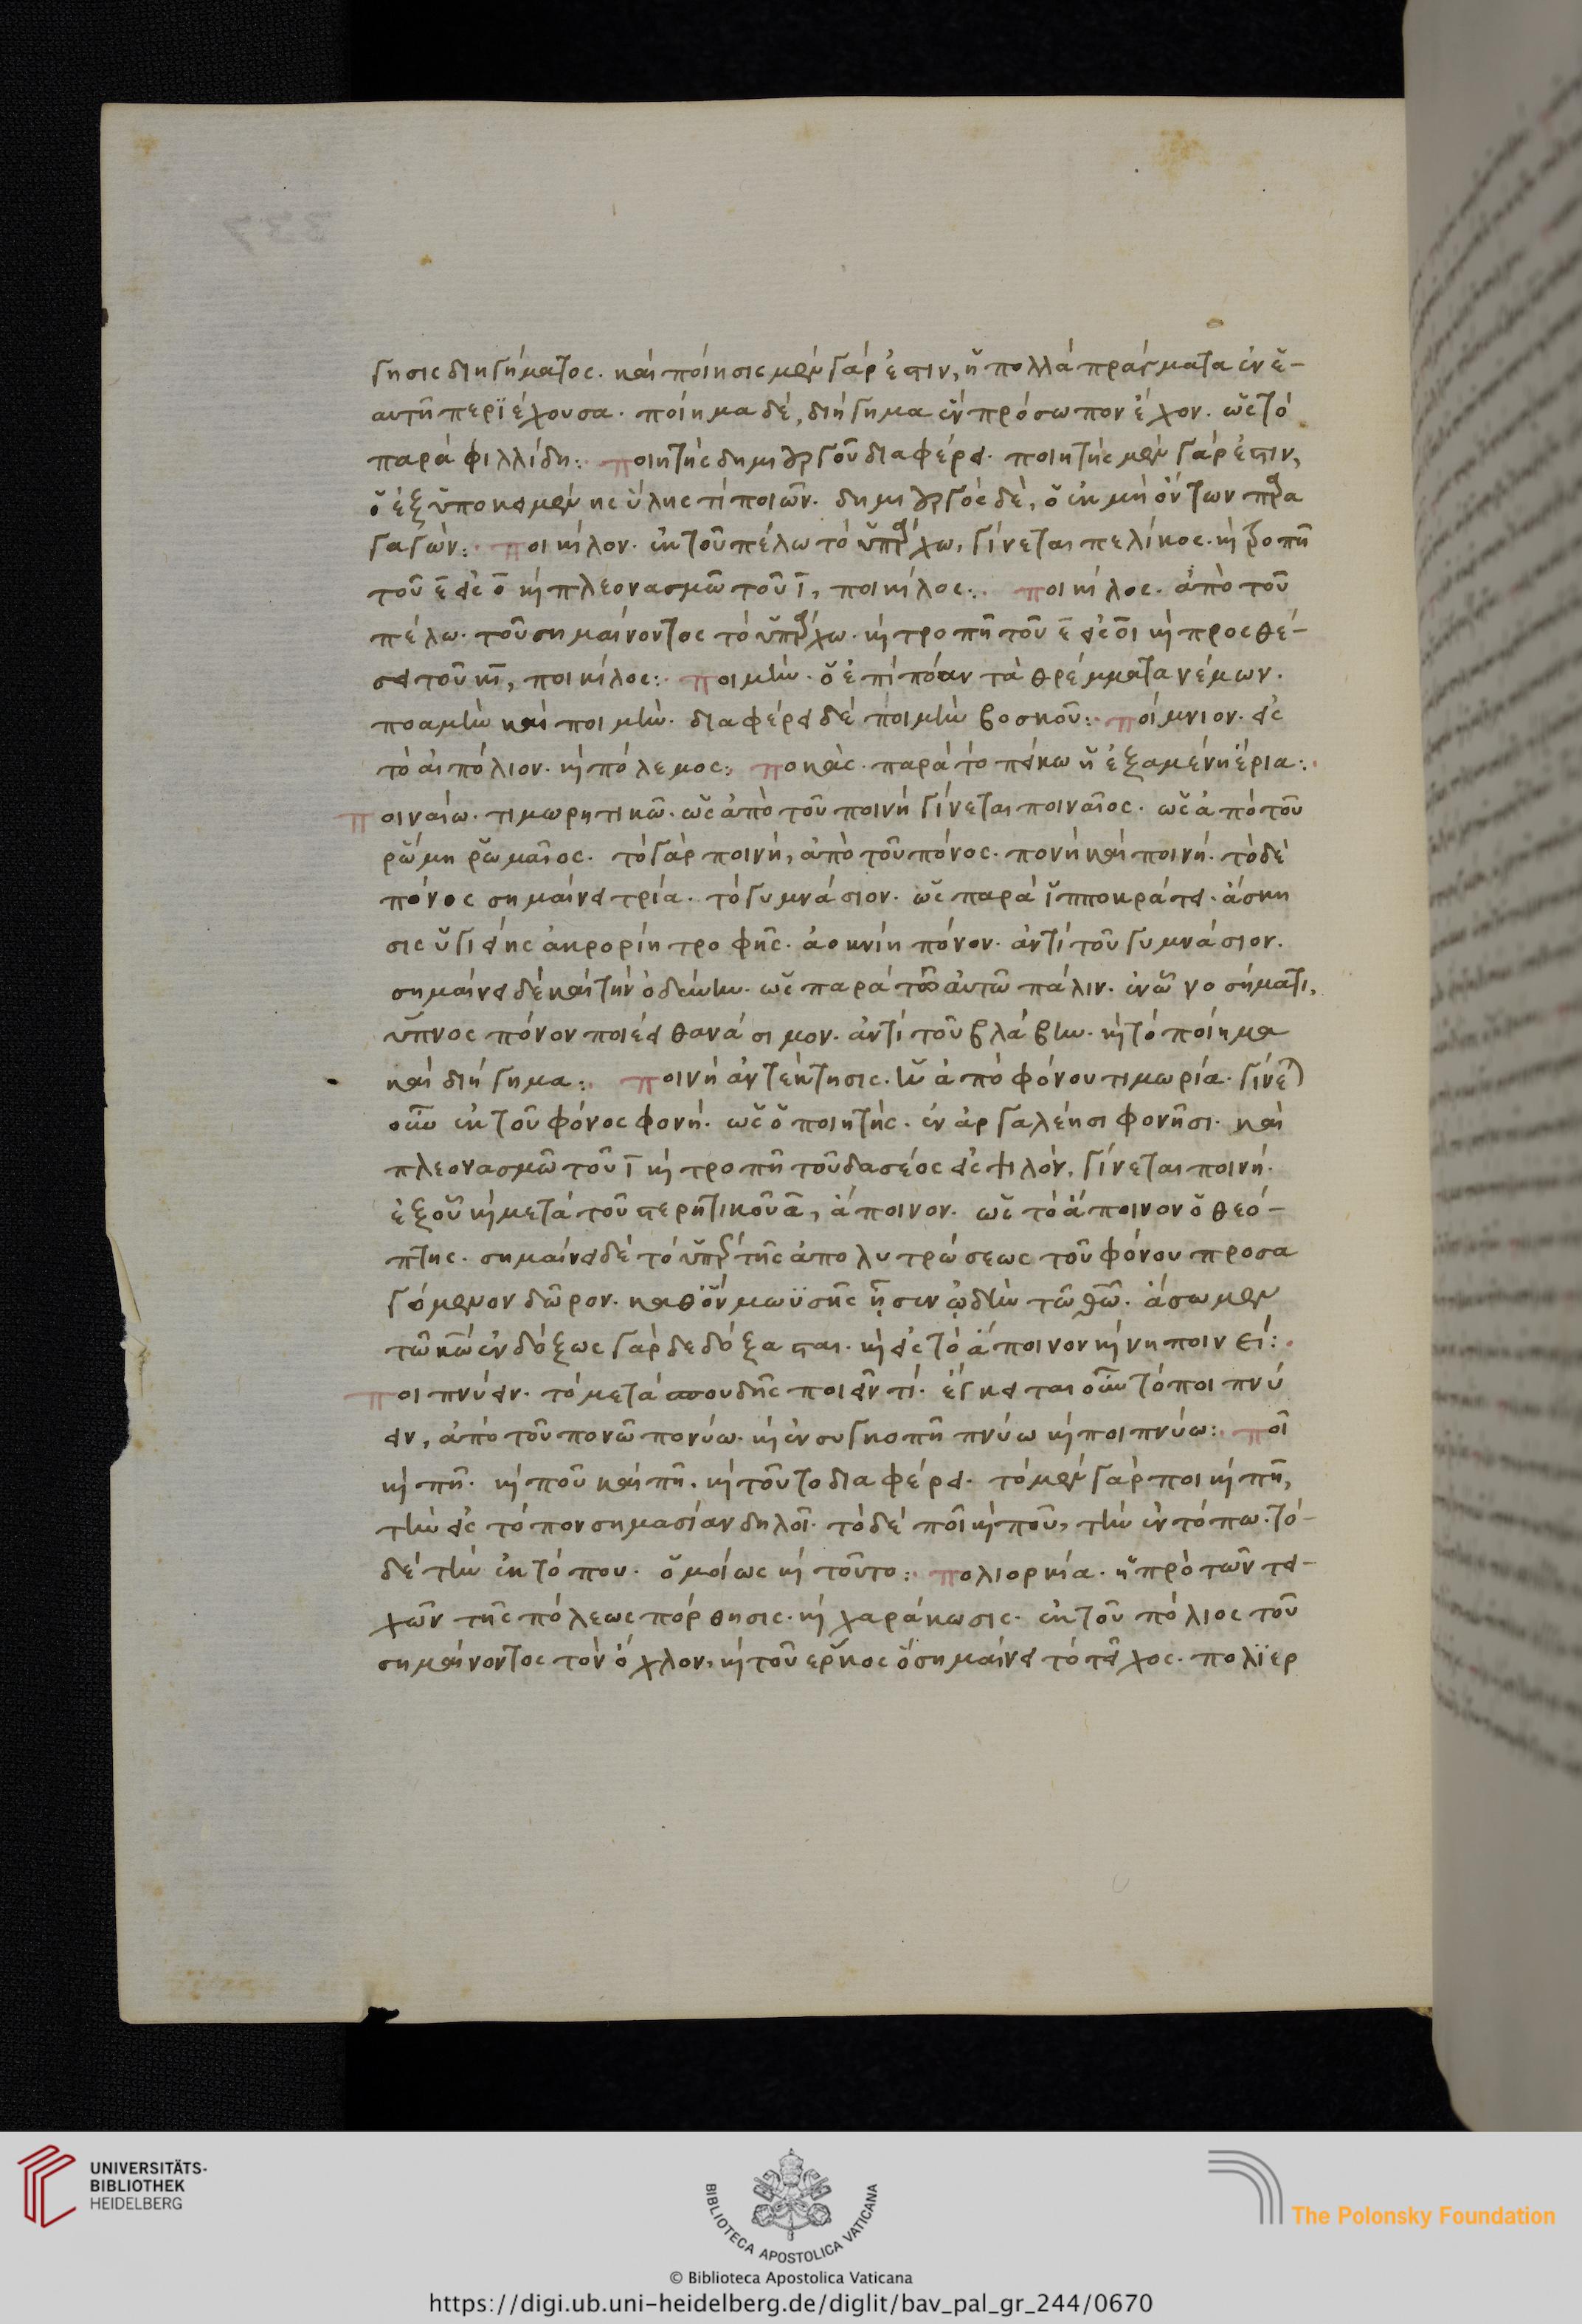 γησις διηγήματος. καὶ ποίησις μὲν γάρ ἐστιν, ἡ πολλὰ πράγματα ἐν ἑ-
αυτῆ περϊέχουσα. ποίημα δὲ, διήγημα ἓν πρόσωπον ἔχον. ὡς τὸ
παρὰ φιλλίδη: ποιητὴς δημιουργοῦ διαφέρει. ποιητὴς μὲν γάρ ἐστιν,
ὁ ἐξ ὑποκειμένης ὕλης τὶ ποιῶν. δημιουργὸς δὲ, ὁ ἐκ μὴ ὄντων παρα
γαγών: ποικίλον. ἐκ τοῦ πέλω τὸ ὑπάρχω, γίνεται πελίκος. κὶ τροπῆ
τοῦ ε εἰς ο κὶ πλεονασμῶ τοῦ ϊ, ποικίλος: ποικίλος. ἀπὸ τοῦ
πέλω. τοῦ σημαίνοντος τὸ ὑπάρχω. κὶ τροπῆ τοῦ ε εἰς οι κὶ προσθέ-
σει τοῦ κι, ποικίλος: ποιμὴν. ὁ ἐπὶ πόαν τὰ θρέμματα νέμων.
ποαμὴν καὶ ποιμὴν. διαφέρει δὲ ποιμὴν βοσκοῦ: ποίμνιον. εἰς
τὸ αἰπόλιον. κὶ πόλεμος: ποκὰς. παρὰ τὸ πείκω ἡ ἐξαμένη ἔρια:
ποιναίω. τιμωρητικῶ. ὡς ἀπὸ τοῦ ποινὴ γίνεται ποιναῖος. ὡς ἀπὸ τοῦ
ῥώμη ῥωμαῖος. τὸ γὰρ ποινή, ἀπὸ τοῦ πόνος. πονὴ καὶ ποινή. τὸ δὲ
πόνος σημαίνει τρία. τὸ γυμνάσιον. ὡς παρὰ ἱπποκράτει. ἄσκη
σις ὑγιείης ἀκρορίη τροφῆς. ἀοκνίη πόνον. ἀντὶ τοῦ γυμνάσιον.
σημαίνει δὲ καὶ τὴν ὀδύνην. ὡς παρὰ τῶ αὐτῶ πάλιν. ἐν ὧ νοσήματι,
ὕπνος πόνον ποιέει θανάσιμον. ἀντὶ τοῦ βλάβην. κὶ τὸ ποίημα
καὶ διήγημα: ποινὴ ἀντέκτησις. ἢ ἀπὸ φόνου τιμωρία. γίνε
οὖν ἐκ τοῦ φόνος φονή. ὡς ὁ ποιητὴς. ἐν ἀργαλέησι φονῆσι. καὶ
πλεονασμῶ τοῦ ϊ κὶ τροπῆ τοῦ δασέος εἰς ψιλόν, γίνεται ποινή.
ἐξ οὗ κὶ μετὰ τοῦ στερητικοῦ α, ἄποινον. ὡς τὸ ἄποινον ὁ θεό-
πτης. σημαίνει δὲ τὸ ὑπὲρ τῆς ἀπολυτρώσεως τοῦ φόνου προσα
γόμενον δῶρον. καθ' ὃν μωϋσῆς ᾖσεν ᾠδὴν τῶ θῶ. ἄσωμεν
τῶ κῶ ἐνδόξως γὰρ δεδόξασται. κὶ εἰς τὸ ἄποινον κὶ νηποινεί:
ποιπνύειν. τὸ μετὰ σπουδῆς ποιεῖν τί. ἔγκειται οὖν τὸ ποιπνύ
ειν, ἀπὸ τοῦ πονῶ πονύω. κὶ ἐν συγκοπῆ πνύω κὶ ποιπνύω: ποῖ
κὶ πῆ. κὶ ποῦ καὶ πῆ. κὶ τοῦτο διαφέρει. τὸ μὲν γὰρ ποι κὶ πῆ,
τὴν εἰς τόπον σημασίαν δηλοῖ. τὸ δὲ ποῖ κὶ ποῦ, τὴν ἐν τόπω. τὸ-
δὲ τὴν ἐκ τόπου. ὁμοίως κὶ τοῦτο: πολιορκία. ἡ πρὸ τῶν τει-
χῶν τῆς πόλεως πόρθησις. κὶ χαράκωσις. ἐκ τοῦ πόλιος τοῦ
σημαίνοντος τὸν ὄχλον, κὶ τοῦ ερκος ὃ σημαίνει τὸ τεῖχος. πολϊερ
UNIVERSITÄTS-
BIBLIOTHEK
HEIDELBERG
BIBLIOTECA APOSTOLICA VATICANA
The Polonsky Foundation
© Biblioteca Apostolica Vaticana
https://digi.ub.uni-heidelberg.de/diglit/bav_pal_gr_244/0670